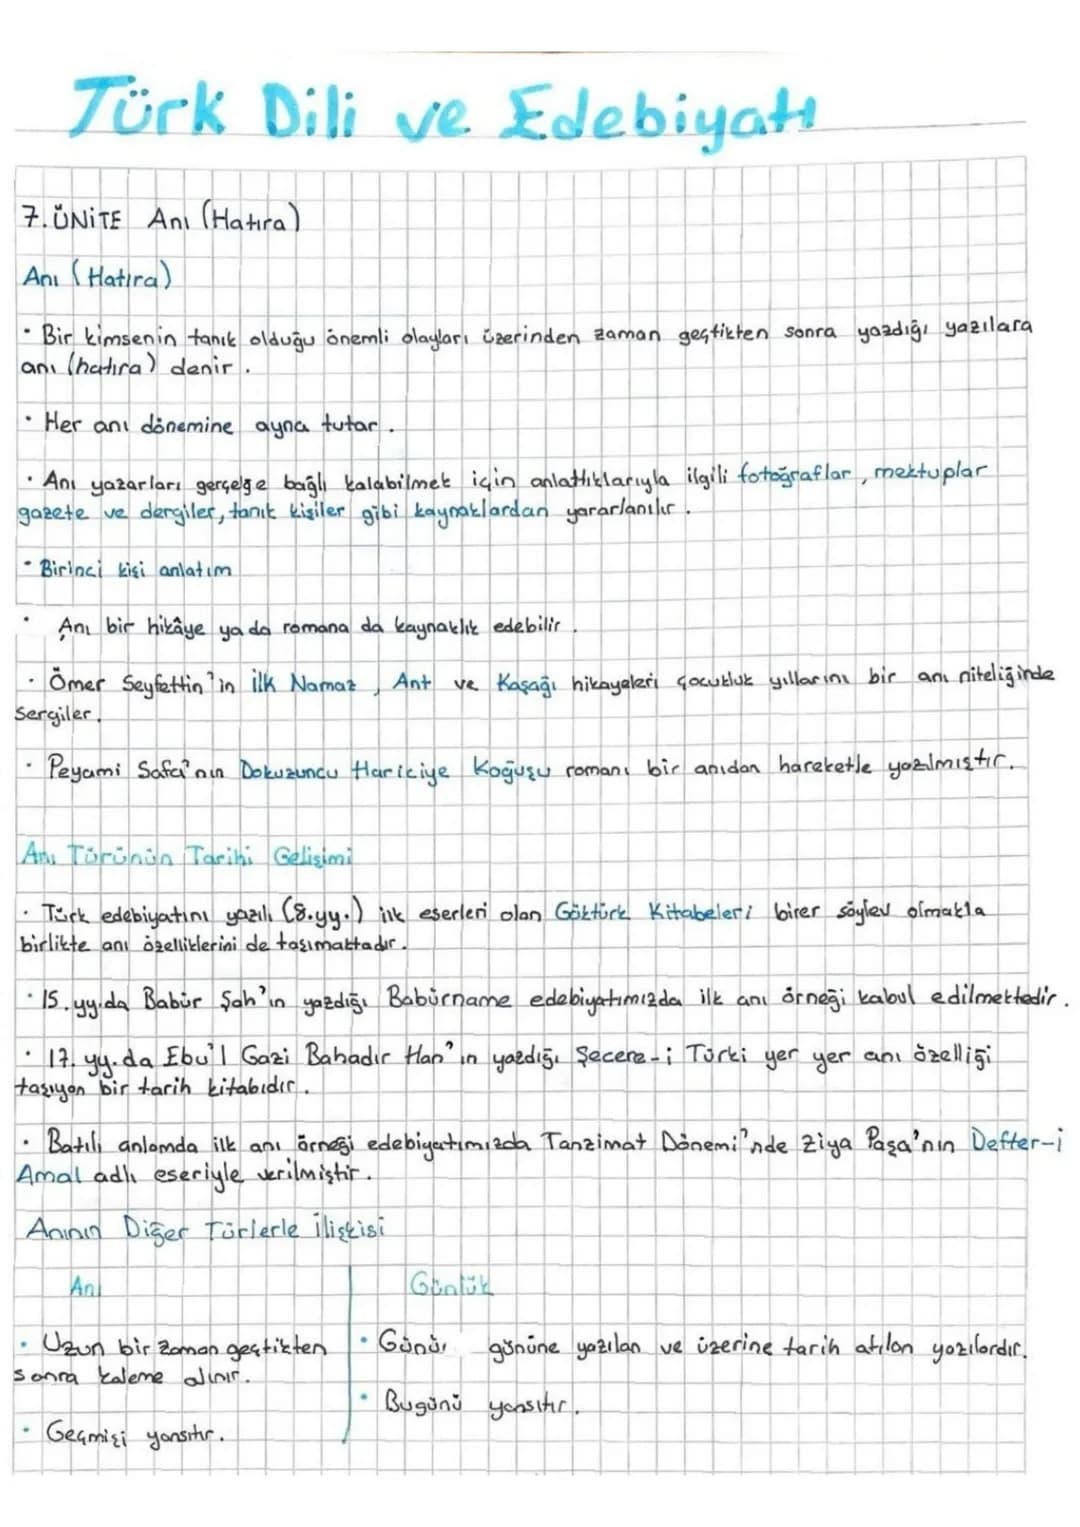 Türk Dili ve Edebiyatı
7.ÜNİTE Anı (Hatıra)
Anı (Hatıra)
• Bir kimsenin tanık olduğu önemli olayları üzerinden zaman geçtikten sonra yazdığı yazılara
anı (hatıra) denir.
• Her anı dönemine ayna tutar.
• Anı yazarları gerçeğe bağlı kalabilmek için anlattıklarıyla ilgili fotoğraflar, mektuplar
gazete ve dergiler, tanık kişiler gibi kaynaklardan yararlanılır.
• Birinci kişi anlatım
• Anı bir hikâye ya da romana da kaynaklık edebilir.
• Ömer Seyfettin'in İlk Namaz, Ant ve Kaşağı hikayeleri çocukluk yıllarını bir anı niteliğinde
sergiler.
• Peyami Safa'nın Dokuzuncu Hariciye Koğuşu romanı bir anıdan hareketle yazılmıştır.
Anı Türünün Tarihi Gelişimi
• Türk edebiyatını yazılı (8.yy.) ilk eserleri olan Göktürk Kitabeleri birer söylev olmakla
birlikte anı özelliklerini de taşımaktadır.
• 15.yy.da Babür Şah'ın yazdığı Babürname edebiyatımızda ilk anı örneği kabul edilmektedir.
• 17. yy.da Ebu'l Gazi Bahadır Han'ın yazdığı Şecere-i Türki yer yer anı özelliği
taşıyan bir tarih kitabıdır.
• Batılı anlamda ilk anı örneği edebiyatımızda Tanzimat Dönemi'nde Ziya Paşa'nın Defter-i
Amal adlı eseriyle verilmiştir.
Anının Diğer Türlerle İlişkisi
Anı
• Uzun bir zaman geçtikten
sonra kaleme alınır.
• Geçmişi yansıtır.
Günlük
• Günü gününe yazılan ve üzerine tarih atılan yazılardır.
• Bugünü yansıtır.